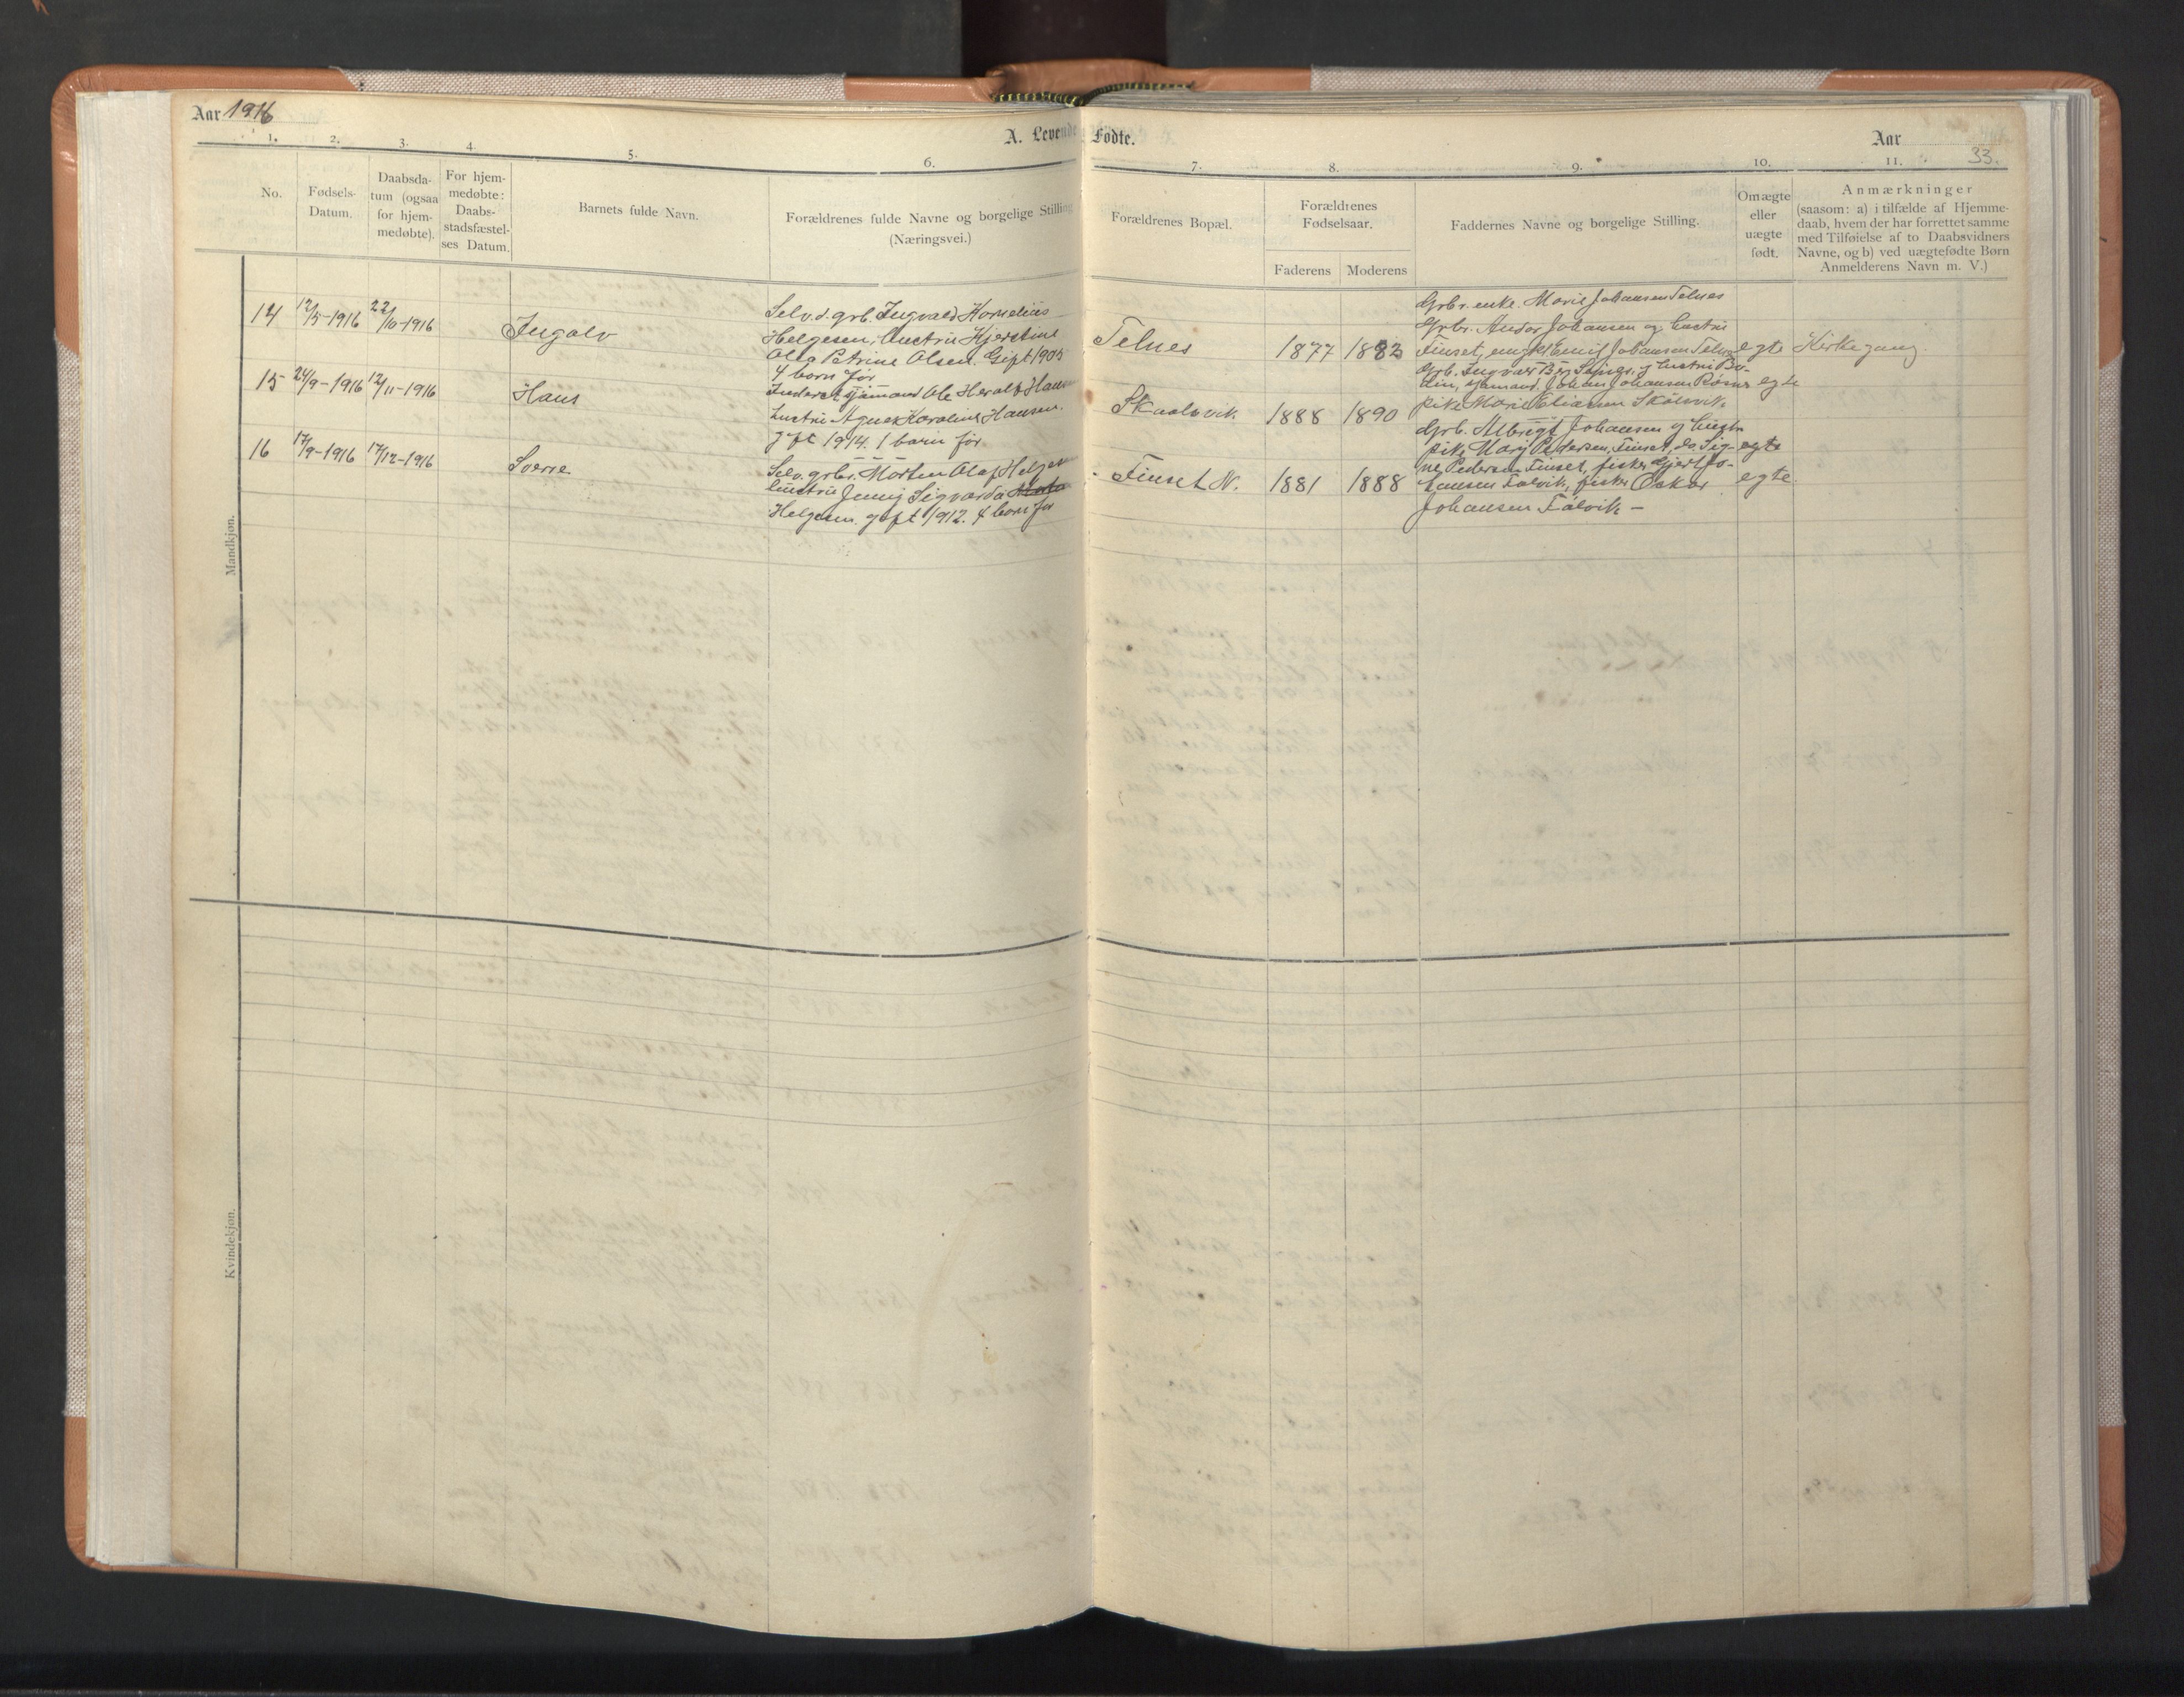 Aar 1916
A. Levende Fødte.
Aar
33.
1. 2. 3. 4. 5. 6. 7. 8. 9. 10. 11.
No.
Fødsels-
Datum.
Daabsda-
tum (ogsaa
for hjem-
medøbte).
For hjem-
medøbte:
Daabs-
stadsfæstel-
ses Datum.
Barnets fulde Navn.
Forældrenes fulde Navne og borgelige Stilling
(Næringsvei.)
Forældrenes Bopæl.
Forældrenes
Fødselsaar.
Faderens Moderens
Faddernes Navne og borgelige Stilling.
Om ægte
eller
uægte
født.
Anmærkninger
(saasom: a) i tilfælde af Hjemme-
daab, hvem der har forrettet samme
med Tilføielse af to Daabsvidners
Navne, og b) ved uægtefødte Børn
Anmelderens Navn m. V.)
Mandkjøn.
14 12/5-1916 22/10-1916
Ingolv
Selv.d. grb. Ingvald Kornelius
Helgesen, hustru Kjerstine
Olea Petrine Olsen. Gift 1905
4 born før
Telnes
1877 1883
Grbr. enke Marie Johansen Telnes
Grbr. Andor Johansen og hustru
Finset, Emil Johansen Telnes
egte
Kirkegang.
15 24/9-1916 12/11-1916
Hans
Inderst sjømand Ole Herolf Hansen
hustru Agnes Karoline Hansen.
gift 1914. 1 barn før
Skaalvik
1888 1890
Grb. Ingvar og hustru
Johan Johansen
pike Marie Eliasen Skålvik
egte
16 17/9-1916 17/12-1916
Sverre
Selv. grbr. Morten Olaf Helgesen
hustru Jenny Sigvarda
Helgesen gift 1912. 4 born før
Finset N.
1881 1888
Grb. Albrigt Johansen og hustru
pike Mary Pedersen, Finset, do Sig-
ne Pedersen Finset, fisker Hjert Jo-
hansen Falvik, fisker Oskar
Johansen Falvik -
egte
egte.
Kvindekjøn.